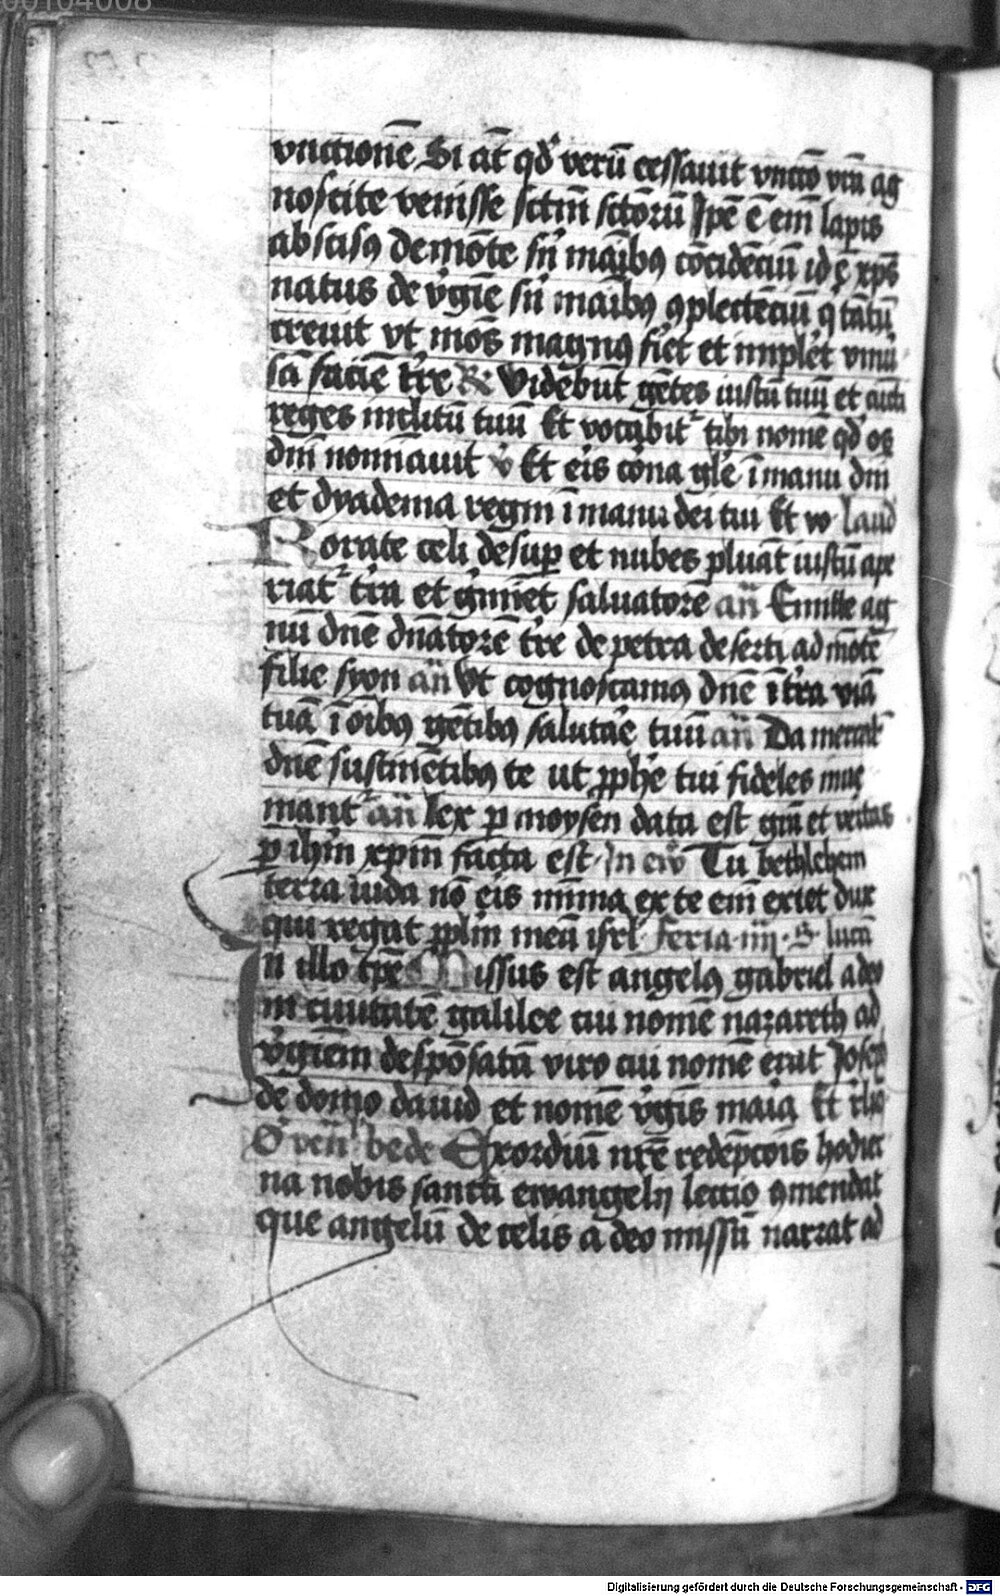 00104008
vnctionē Si āt qd̄ verū cessauit vnctō vr̄a ag
noscite venisse sctm̄ sctōrū Ipē ē em̄ lapis
abscisꝰ de mōte sn̄ maībꝰ cōcidēciū id ē xp̄s
natus de v̓gīe sn̄ maibꝰ ꝯplectēciū q tātū
creuit vt mōs magnꝰ fiet et implēt vniu
sā faciē tr̄e R Videbūt gētes iustū tuū et cūcti
reges inclitū tuū Et vocabit᷑ tibi nomē qd̄ os
dn̄i noīauit v Et eīs corōa gl̄e ī manu dn̄i
et dyadema regni ī manu dei tui Et vo laud
Rorate celi desuꝑ et nubes pluāt iustū ape
riat᷑ tr̄a et g̓mīet saluatorē an̄ Emitte ag
nū dn̄e dn̄atorē tr̄e de petra deserti ad mōtē
filie syon an̄ Vt cognoscamꝰ dn̄e ī tr̄a viā
tuā ī oībꝰ gētibꝰ salutar̄e tuū an̄ Da mercedē
dn̄e sustinētibꝰ te ut ꝓph̄e tui fideles inue
niant᷑ an̄ Lex ꝑ moysen data est gr̄a et veritas
ꝑ ih̄m xp̄m facta est In ew̄ Tu bethlehem
terra iuda nō eīs mīma ex te em̄ exiet dux
qui regat ꝓpl̄m meū isrl̄ Feria iiij S lucā
N illo tp̄e Missus est angelꝰ gabriel a deo
in ciuitatē galilee cui nomē nazareth ad
v̓ginem despōsatā viro cui nomē erat Joseph
de domo dauid et nomē v̓gīs maīa Et rl̄iq
O ven̄ bede Exordiū nr̄e redēpcōis hodier
na nobis sancti ewangelij lectio ꝯmendat
que angelū de celis a deo missū narrat ad
Digitalisierung gefördert durch die Deutsche Forschungsgemeinschaft - DFG